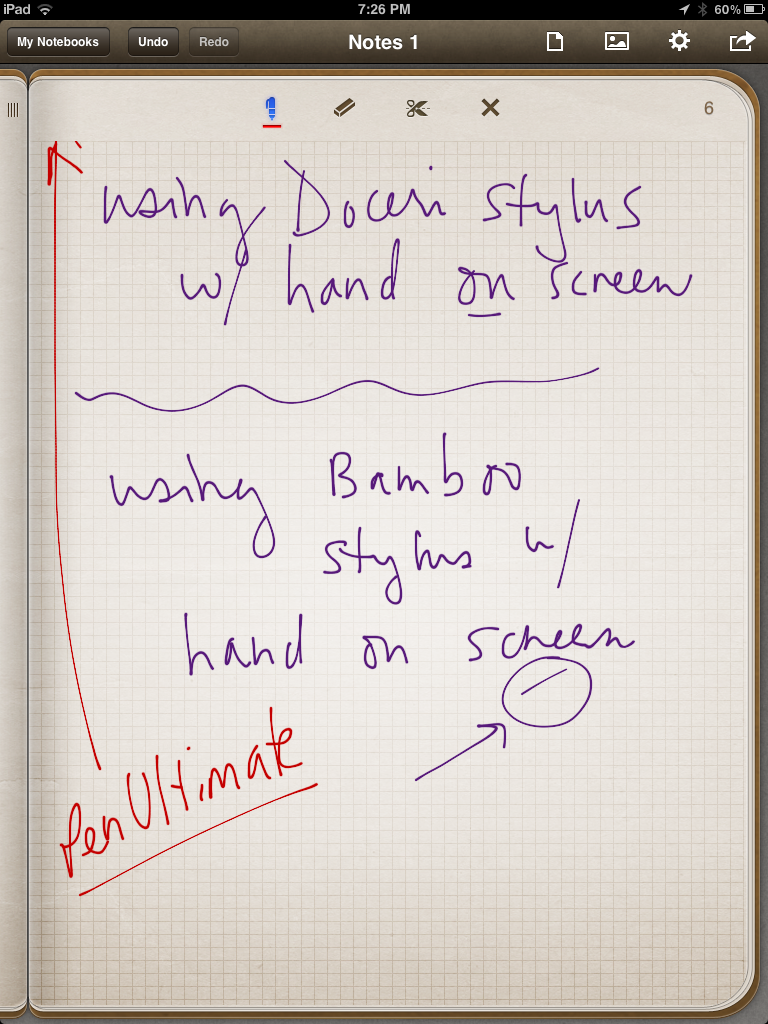 iPad 7:26 PM 60%
My Notebooks Undo Redo Notes 1
6
using Doceri stylus
w/ hand on screen
using Bamboo
stylus w/
hand on screen
PenUltimate